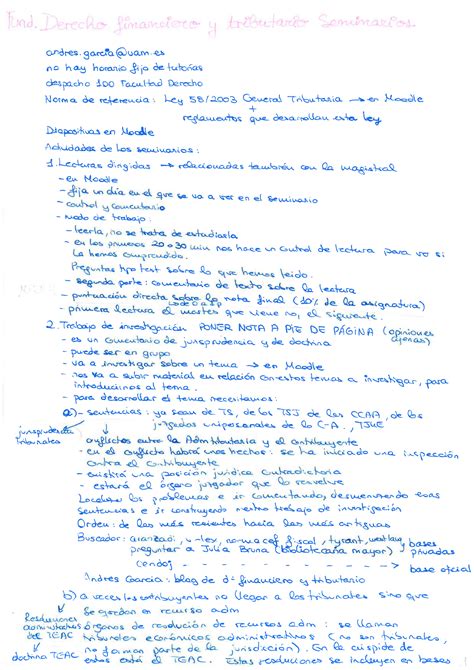 Fund. Derecho financiero y tributario Seminarios.
andres.garcia@uam.es
no hay horario fijo de tutorías
despacho 100 Facultad Derecho
Norma de referencia: Ley 58/2003 General Tributaria → en Moodle
+
reglamentos que desarrollan esta ley
Diapositivas en Moodle
Actividades de los seminarios:
1. Lecturas dirigidas → relacionadas también con la magistral
- en Moodle
- fija un día en el que se va a ver en el seminario
- control y comentario
- Modo de trabajo:
- leerla, no se trata de estudiarla
- en los primeros 20 o 30 min nos hace un control de lectura para ver si
la hemos comprendido.
Preguntas tipo test sobre lo que hemos leído.
- segunda parte: comentario de texto sobre la lectura
- puntuación directa sobre la nota final (10% de la asignatura)
- primera lectura el martes que viene no, el siguiente.
2. Trabajo de investigación PONER NOTA A PIE DE PÁGINA (opiniones
ajenas)
- es un comentario de jurisprudencia y de doctrina
- puede ser en grupo
- va a investigar sobre un tema → en Moodle
- nos va a subir material en relación estos temas a investigar, para
introducirnos al tema.
- para desarrollar el tema necesitamos:
a) - sentencias: ya sean de TS, de los TSJ de las CCAA, de los
juzgados unipersonales de lo C-A, TJUE
jurisprudencia
tribunales
conflictos entre la Adm tributaria y el contribuyente
- en el conflicto habrá unos hechos: se ha iniciado una inspección
contra el contribuyente
- existirá una posición jurídica contradictoria
- estará el órgano juzgador que lo resuelve
Localizar los problemas e ir comentando, desmenuzando esas
sentencias e ir construyendo nuestro trabajo de investigación
Orden: de las más recientes hacia las más antiguas
Buscador: aranzadi, v-lex, norma cef fiscal, tyrant, westlaw bases
preguntar a Julia Bruna (bibliotecaria mayor) privadas
cendoj → base oficial
Andres Garcia: blog de dº financiero y tributario
b) a veces los contribuyentes no llegan a los tribunales sino que
se quedan en recurso adm
Resoluciones
administrativas
del TEAC
órganos de resolución de recursos adm: se llaman
tribunales económicos administrativos (no son tribunales,
doctrina TEAC
no forman parte de la jurisdicción). En la cúspide de
estos está el TEAC. Estas resoluciones se incluyen en bases